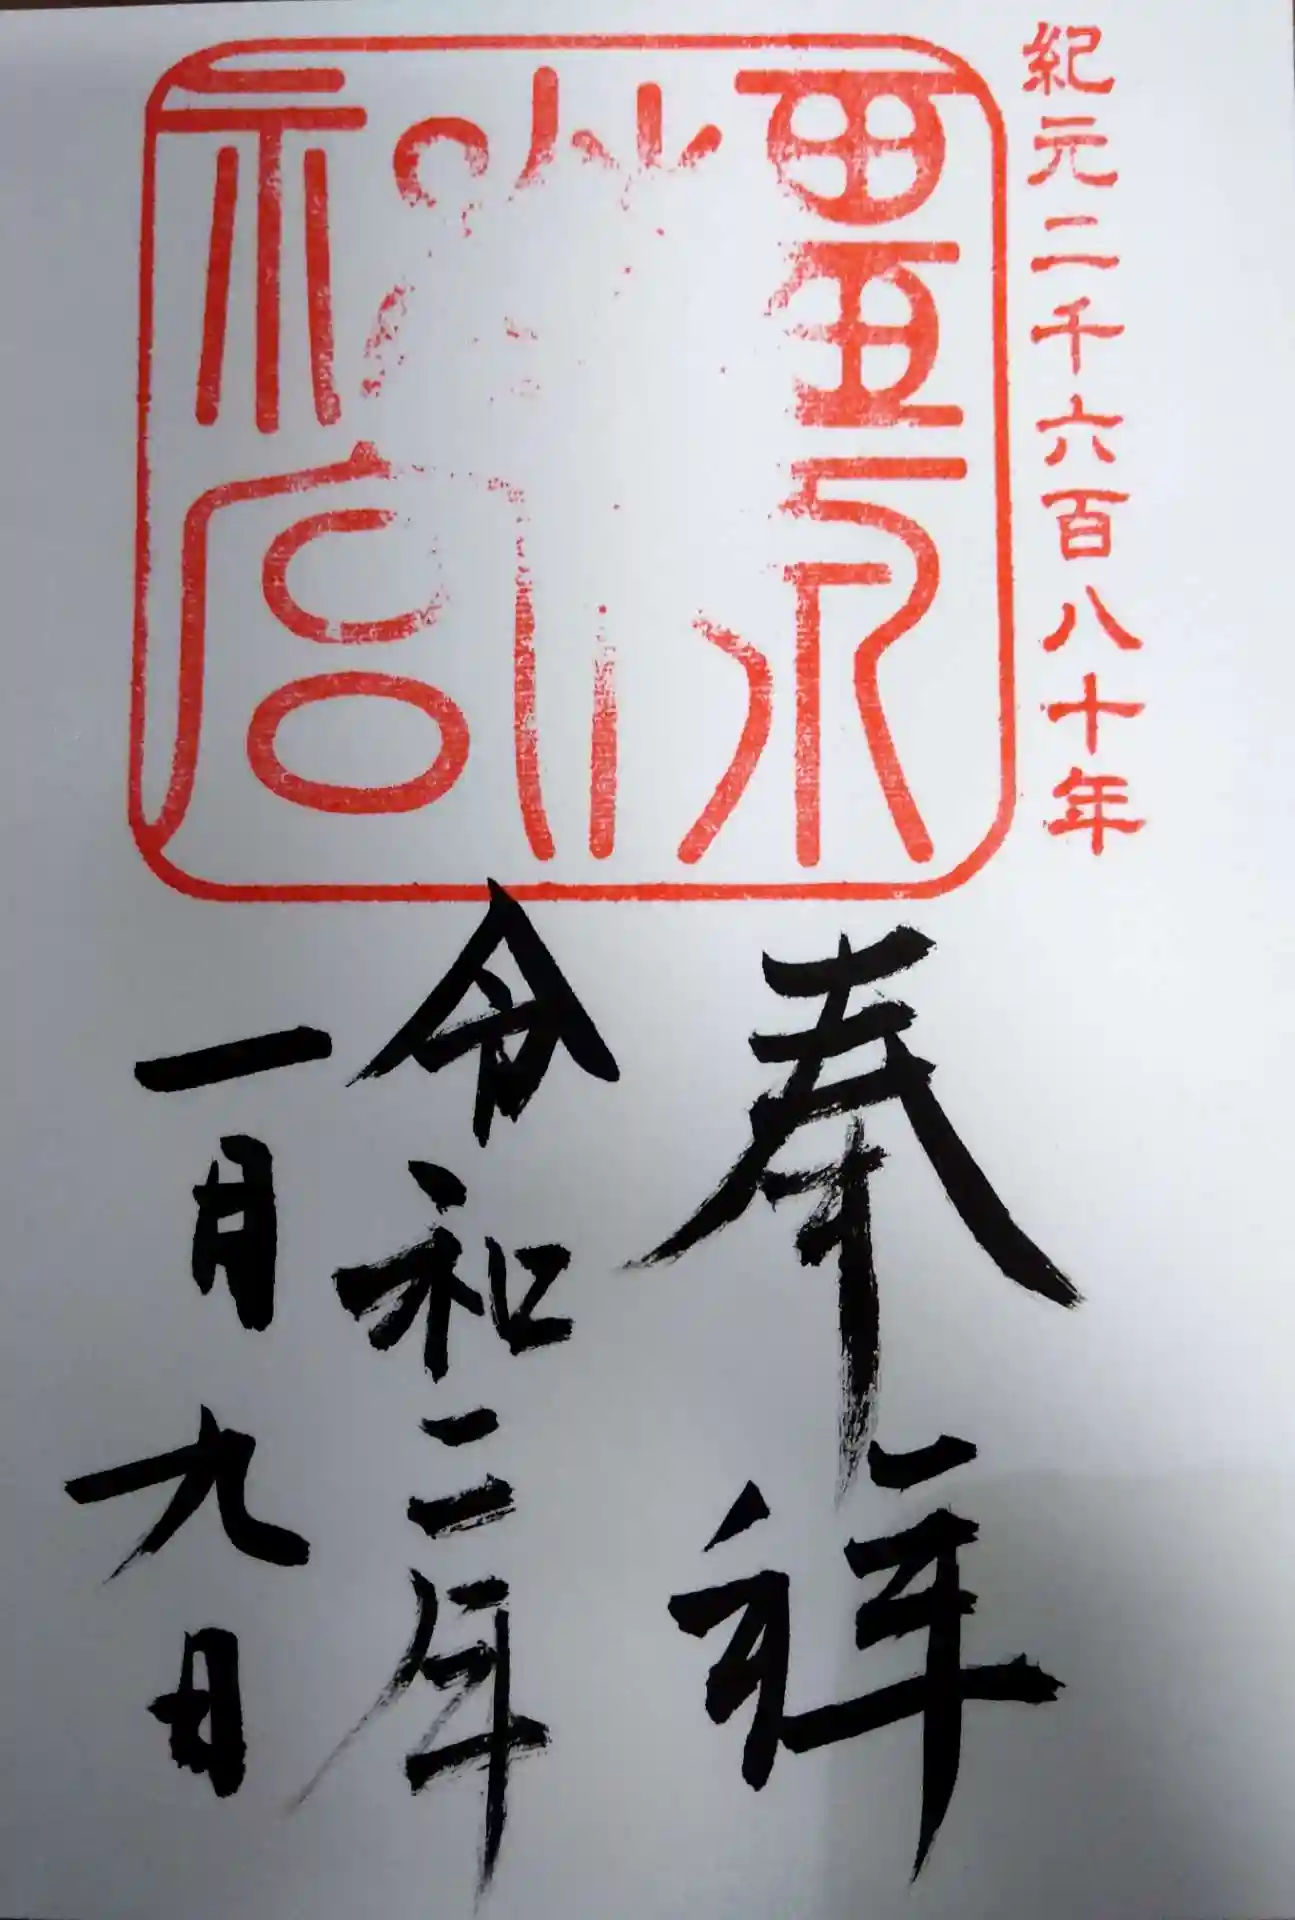 紀元二千六百八十年
橿原
神宮
奉拝
令和二年
一月九日